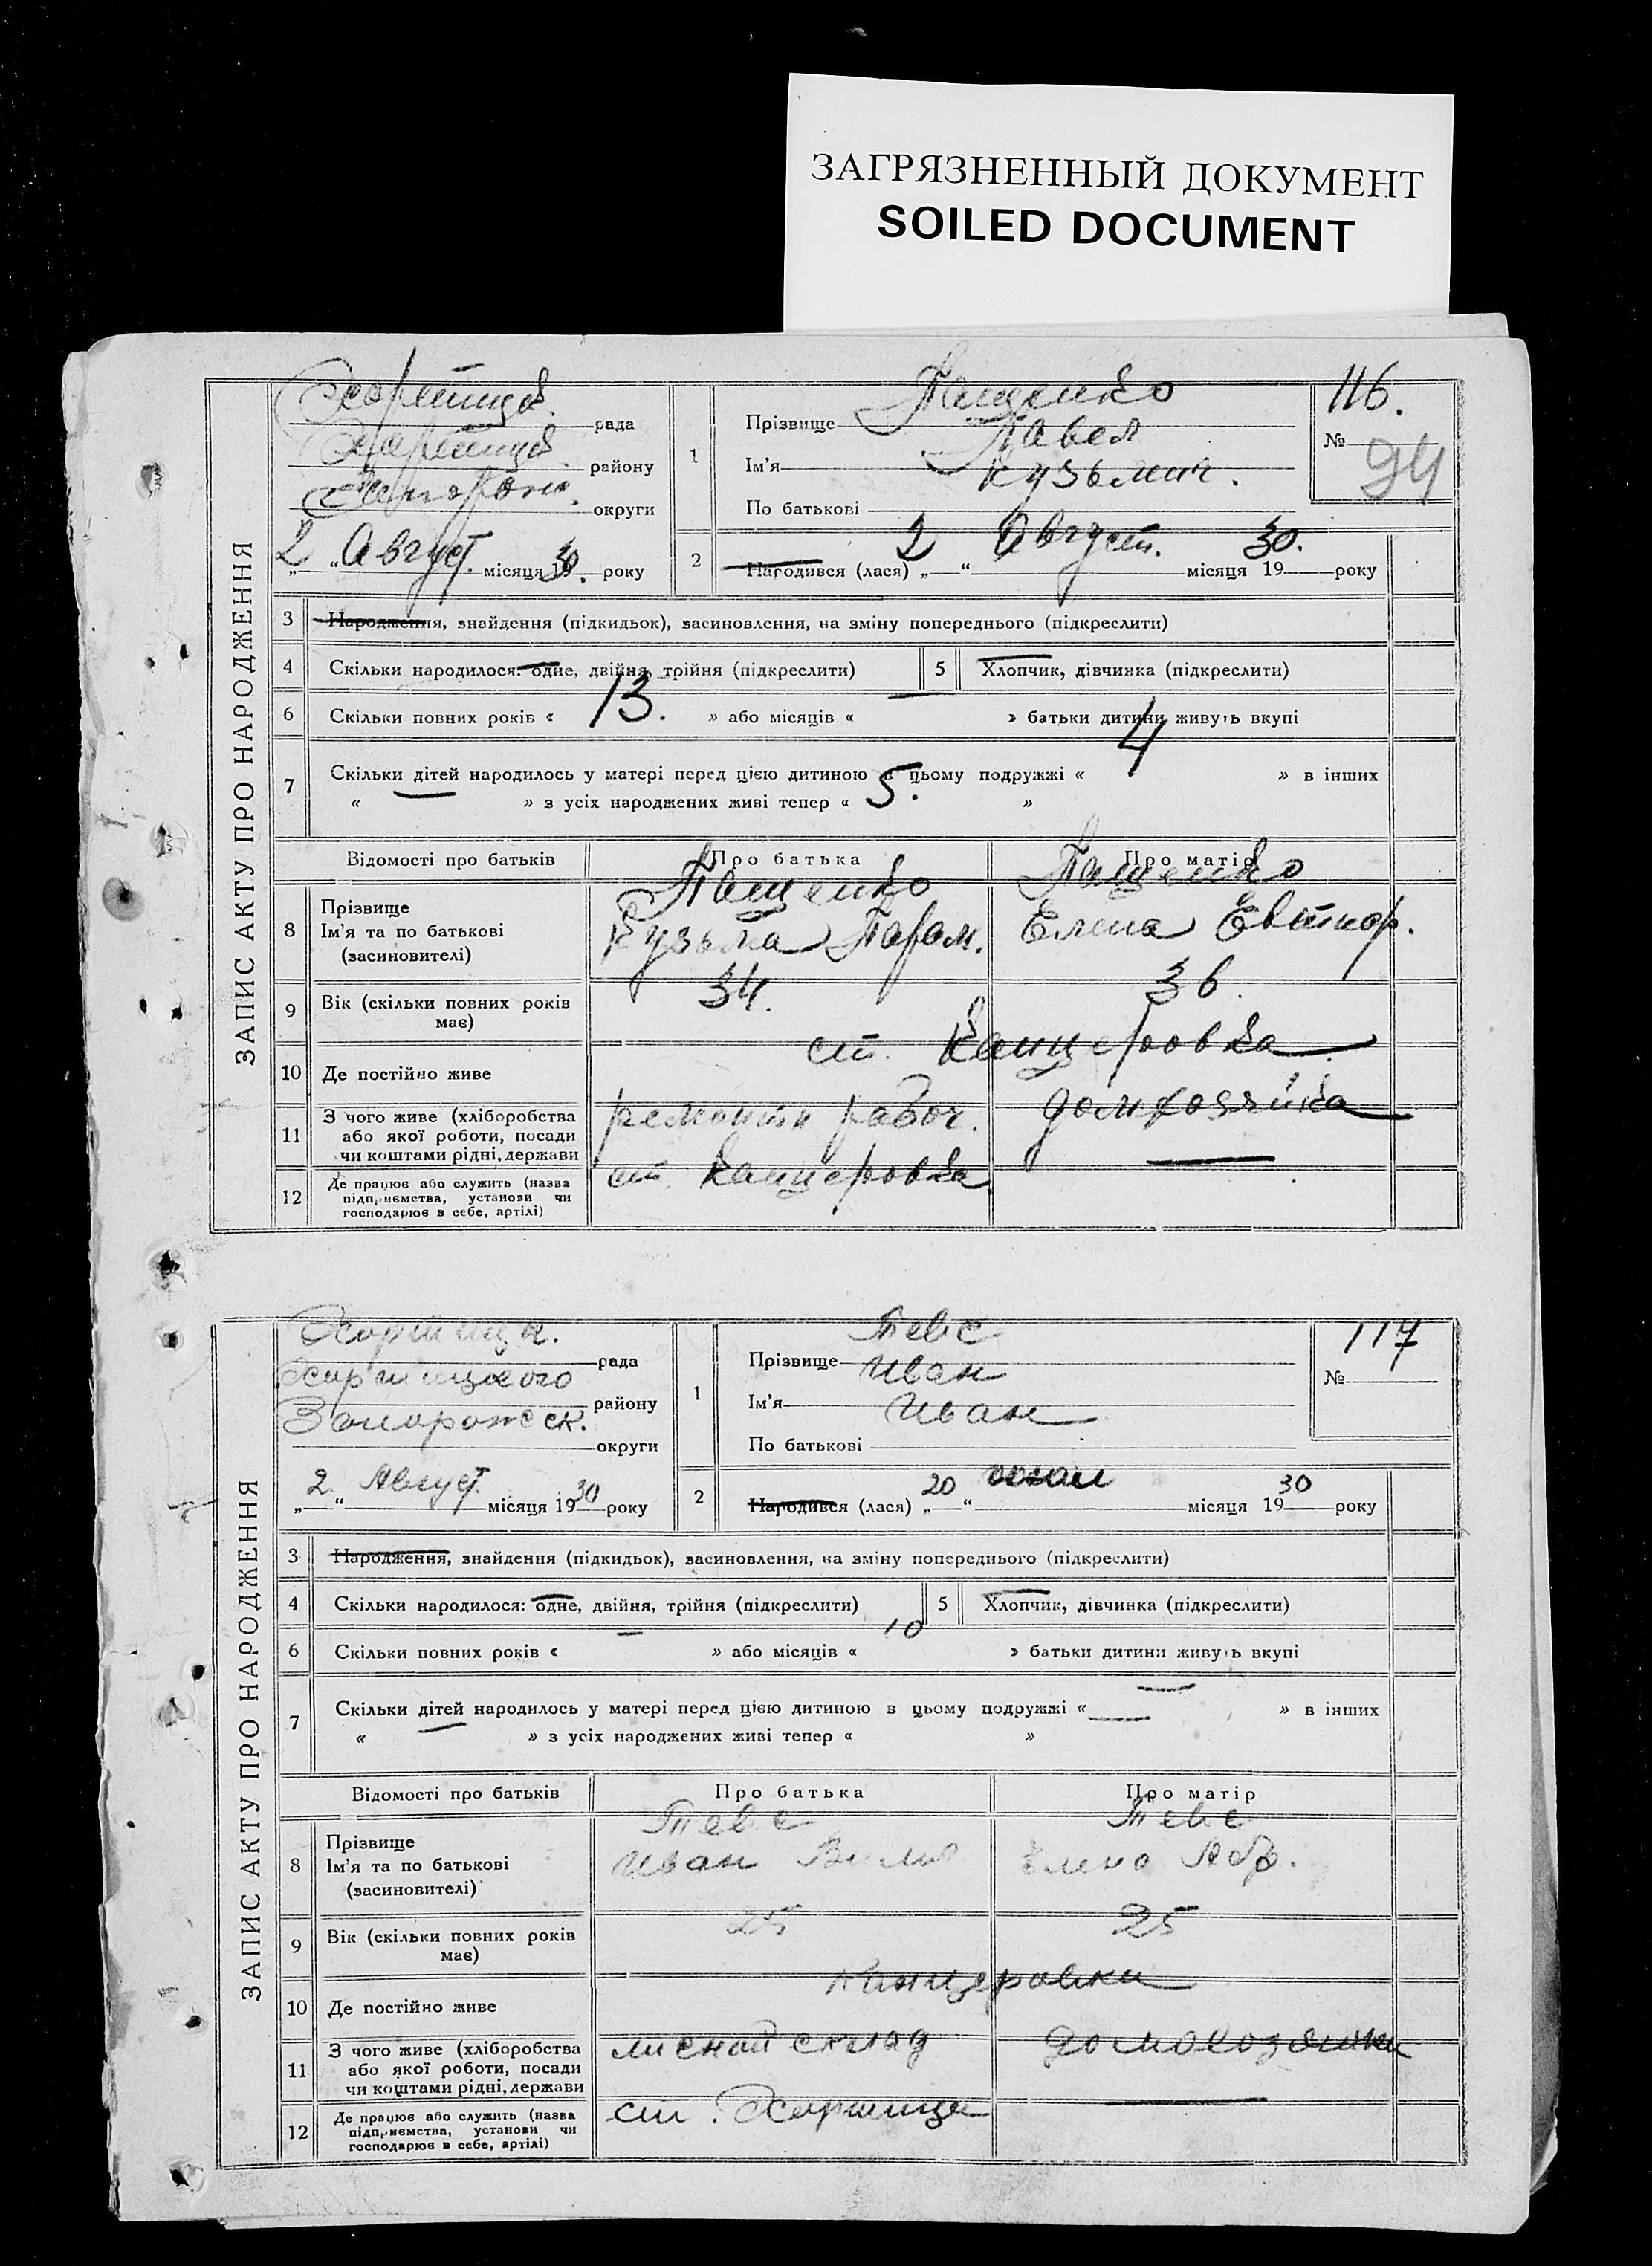 ЗАГРЯЗНЕННЫЙ ДОКУМЕНТ
SOILED DOCUMENT
ЗАПИС АКТУ ПРО НАРОДЖЕННЯ
Хортицк. рада
Хортицк. району
Запорож. округи
„2“ Август. місяця 1930. року
1
Прізвище Пащенко
Ім'я Павел
По батькові Кузьмич.
116.
№
94
2
Народився (лася) „2“ Август. місяця 1930. року
3 Народження, знайдення (підкидьок), засиновлення, на зміну попереднього (підкреслити)
4 Скільки народилося: одне, двійня, трійня (підкреслити)
5 Хлопчик, дівчинка (підкреслити)
6 Скільки повних років « 13. » або місяців « — » батьки дитини живуть вкупі
7 Скільки дітей народилось у матері перед цією дитиною в цьому подружжі « 4 » в інших
« — » з усіх народжених живі тепер « 5. »
Відомості про батьків Про батька Про матір
8 Прізвище Пащенко Пащенко
Ім'я та по батькові Кузьма Елена
(засиновителі)
9 Вік (скільки повних років має) 34. 36.
10 Де постійно живе ст. Канцеровка
11 З чого живе (хліборобства
або якої роботи, посади
чи коштами рідні, держави
ремонтн рабоч. домхозяйка
12 Де працює або служить (назва
підприємства, установи чи
господарює в себе, артілі)
ст. Канцеровка —
ЗАПИС АКТУ ПРО НАРОДЖЕННЯ
Хортицк. рада
Хортицкого району
Запорожск. округи
„2“ Август. місяця 1930 року
1
Прізвище Тевс
Ім'я Иван
По батькові Иван
117
№
2
Народився (лася) „20“ місяця 1930 року
3 Народження, знайдення (підкидьок), засиновлення, на зміну попереднього (підкреслити)
4 Скільки народилося: одне, двійня, трійня (підкреслити)
5 Хлопчик, дівчинка (підкреслити)
6 Скільки повних років « — » або місяців « 10 » батьки дитини живуть вкупі
7 Скільки дітей народилось у матері перед цією дитиною в цьому подружжі « — » в інших
« — » з усіх народжених живі тепер « »
Відомості про батьків Про батька Про матір
8 Прізвище Тевс Тевс
Ім'я та по батькові Иван Елена Абр.
(засиновителі)
9 Вік (скільки повних років має) 25 25
10 Де постійно живе Канцеровка
11 З чого живе (хліборобства
або якої роботи, посади
чи коштами рідні, держави
лисной склад домохозяйка
12 Де працює або служить (назва
підприємства, установи чи
господарює в себе, артілі)
ст. Хортица —